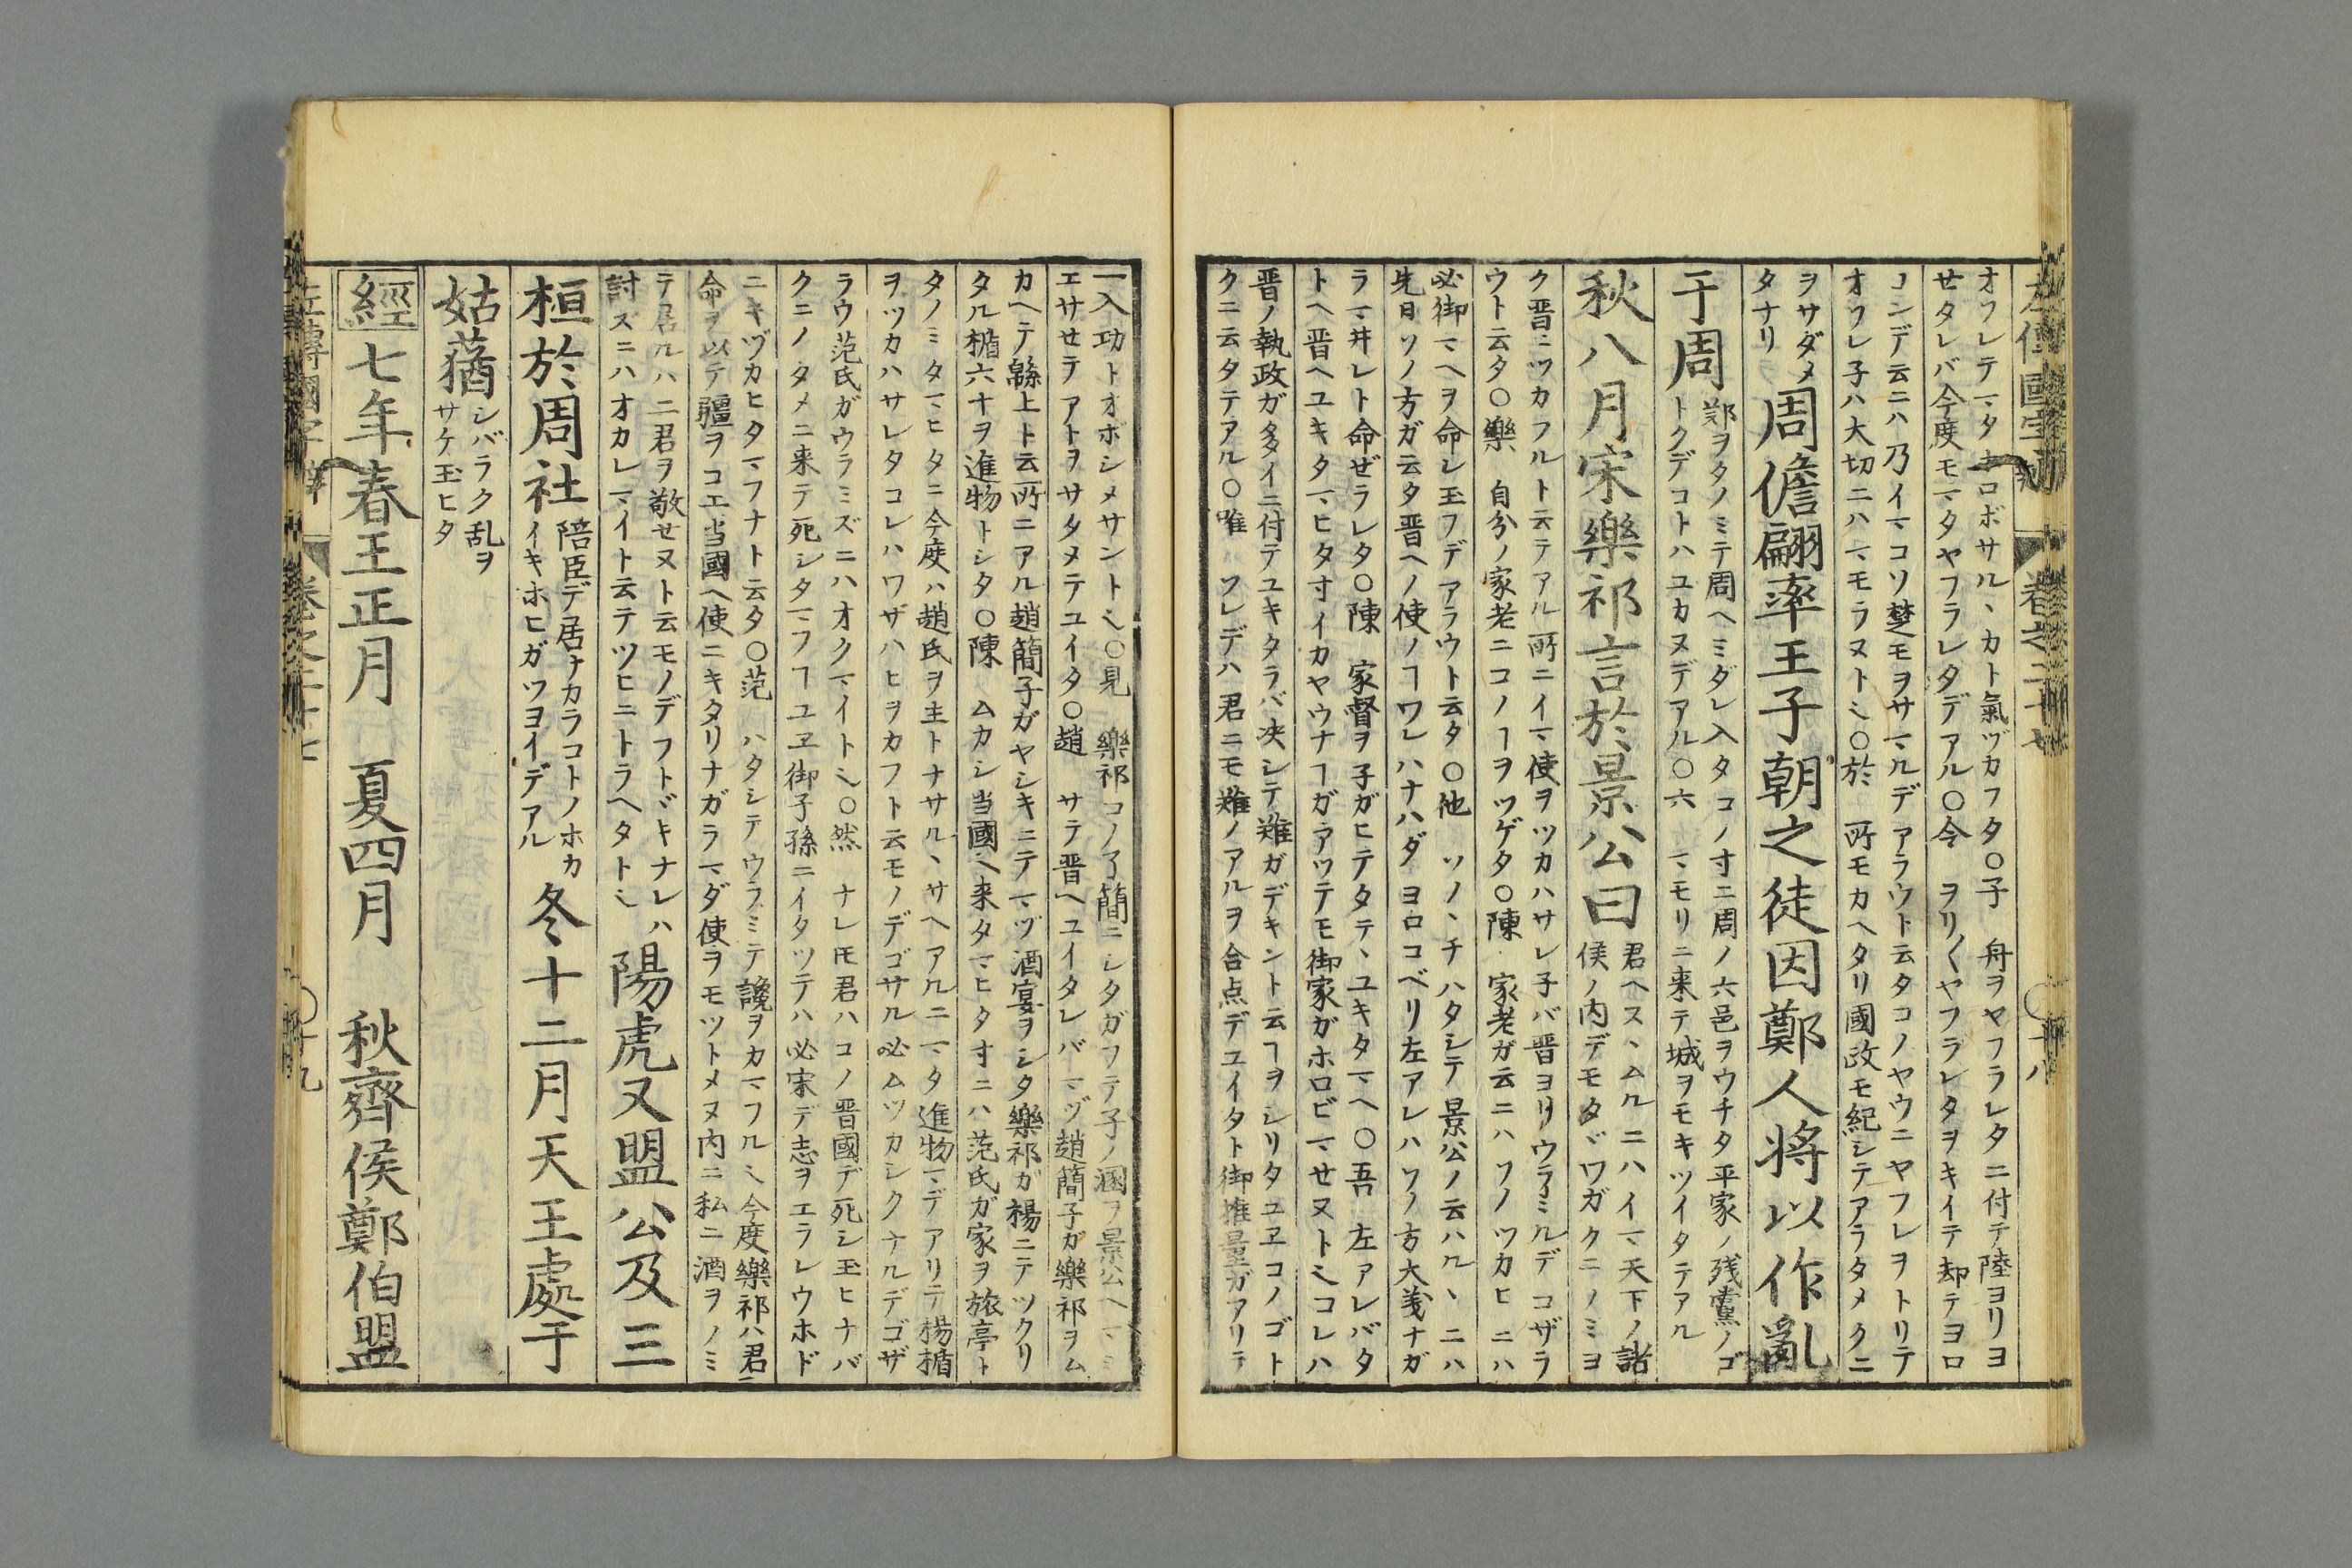 オフレテマタホロボサルヽカト氣ヅカフタ〇子　舟ヲヤフラレタニ付テ陸ヨリヨ
せタレバ今度モマタヤフラレタデアル〇今　ヲリ〳〵ヤフラレタヲキイテ却テヨロ
コンデ云ニハ乃イマコソ楚モヲサマルデアラウト云タコノヤウニヤフレヲトリテ
オソレ子ハ大切ニハマモラヌト〇於　所モカヘタリ國政モ紀シテアラタメクニ
ヲサダメ
タナリ
周儋翩率王子朝之徒因鄭人將以作亂
于周
鄭ヲタノミテ周ヘミダレ入タコノ寸ニ周ノ六邑ヲウチタ平家ノ残黨ノゴ
トクデコトハユカヌデアル〇六　マモリニ来テ城ヲモキツイタテアル
秋八月宋樂祁言於景公曰
君ヘスヽムルニハイマ天下ノ諸
侯ノ内デモタヾワガクニノミヨ
ク晋ニツカフルト云テアル所ニイマ使ヲツカハサレ子バ晋ヨリウラミルデコザラ
ウト云タ〇樂　自分ノ家老ニコノヿヲツゲタ〇陳　家老ガ云ニハソノツカヒニハ
必御マヘヲ命レ玉フデアラウト云タ〇他　ソノヽチハタシテ景公ノ云ハルヽニハ
先日ソノ方ガ云タ晋ヘノ使ノヿワレハナハダヨロコベリ左アレハソノ方大義ナガ
ラマ井レト命ぜラレタ〇陳　家督ヲ子ガヒテタテヽユキタマヘ〇吾　左アレバタ
トヘ晋ヘユキタマヒタ寸イカヤウナヿガアツテモ御家ガホロビマせヌトコレハ
晋ノ執政ガ多イニ付テユキタラバ决シテ難ガデキント云ヿヲシリタユヱコノゴト
クニ云タテアル〇唯　ソレデハ君ニモ難ノアルヲ合点デユイタト御推量ガアリテ
一入功トオボシメサント〇見　樂祁コノ了簡ニシタガフテ子ノ溷ヲ景公ヘマミ
エサせテアトヲサタメテユイタ〇趙　サテ晋ヘユイタレバマヅ趙簡子ガ樂祁ヲム
カヘテ緜上ト云所ニアル趙簡子ガヤシキニテマヅ酒宴ヲシタ樂祁ガ楊ニテツクリ
タル楯六十ヲ進物トシタ〇陳　ムカシ当國ヘ来タマヒタ寸ニハ范氏ガ家ヲ旅亭ト
タノミタマヒタニ今度ハ趙氏ヲ主トナサルヽサヘアルニマタ進物マデアリテ楊楯
ヲツカハサレタコレハワザハヒヲカフト云モノデゴサル必ムツカシクナルデゴザ
ラウ范氏ガウラミズニハオクマイト〇然　ナレモ君ハコノ晋國デ死シ玉ヒナバ
クニノタメニ来テ死シタマフヿユヱ御子孫ニイタツテハ必宋デ志ヲエラレウホド
ニキヅカヒタマフナト云タ〇范　ハタシテウラミテ讒ヲカマフル今度樂祁ハ君ニ
命ヲ以テ疆ヲコエ当國ヘ使ニキタリナガラマダ使ヲモツトメヌ内ニ私ニ酒ヲノミ
テ居ルハ二君ヲ敬せヌト云モノデフトヾキナレハ
討ズニハオカレマイト云テツヒニトラヘタト
陽虎又盟公及三
桓於周社
陪臣デ居ナカラコトノホカ
イキホヒガツヨイデアル
冬十二月天王處于
姑蕕
シバラク乱ヲ
サケ玉ヒタ
經七年春王正月　夏四月　秋齊侯鄭伯盟